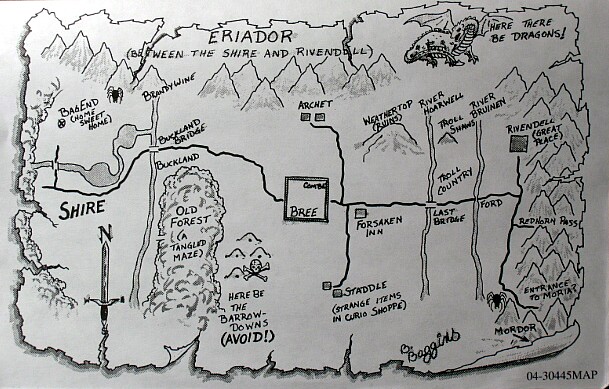 ERIADOR
(BETWEEN THE SHIRE AND RIVENDELL)
HERE THERE
BE DRAGONS!
BAGEND
(HOME
SWEET
HOME)
BRANDYWINE
BUCKLAND
BRIDGE
BUCKLAND
SHIRE
N
OLD
FOREST
(A
TANGLED
MAZE)
HERE BE
THE
BARROW-
DOWNS
(AVOID!)
ARCHET
COMBE
BREE
STADDLE
(STRANGE ITEMS
IN CURIO SHOPPE)
FORSAKEN
INN
WEATHERTOP
(RUINS)
RIVER
HOARWELL
TROLL
SHAWS
TROLL
COUNTRY
LAST
BRIDGE
RIVER
BRUINEN
FORD
RIVENDELL
(GREAT
PLACE)
REDHORN PASS
ENTRANCE
TO MORIA?
MORDOR
B. Baggins
04-30445MAP